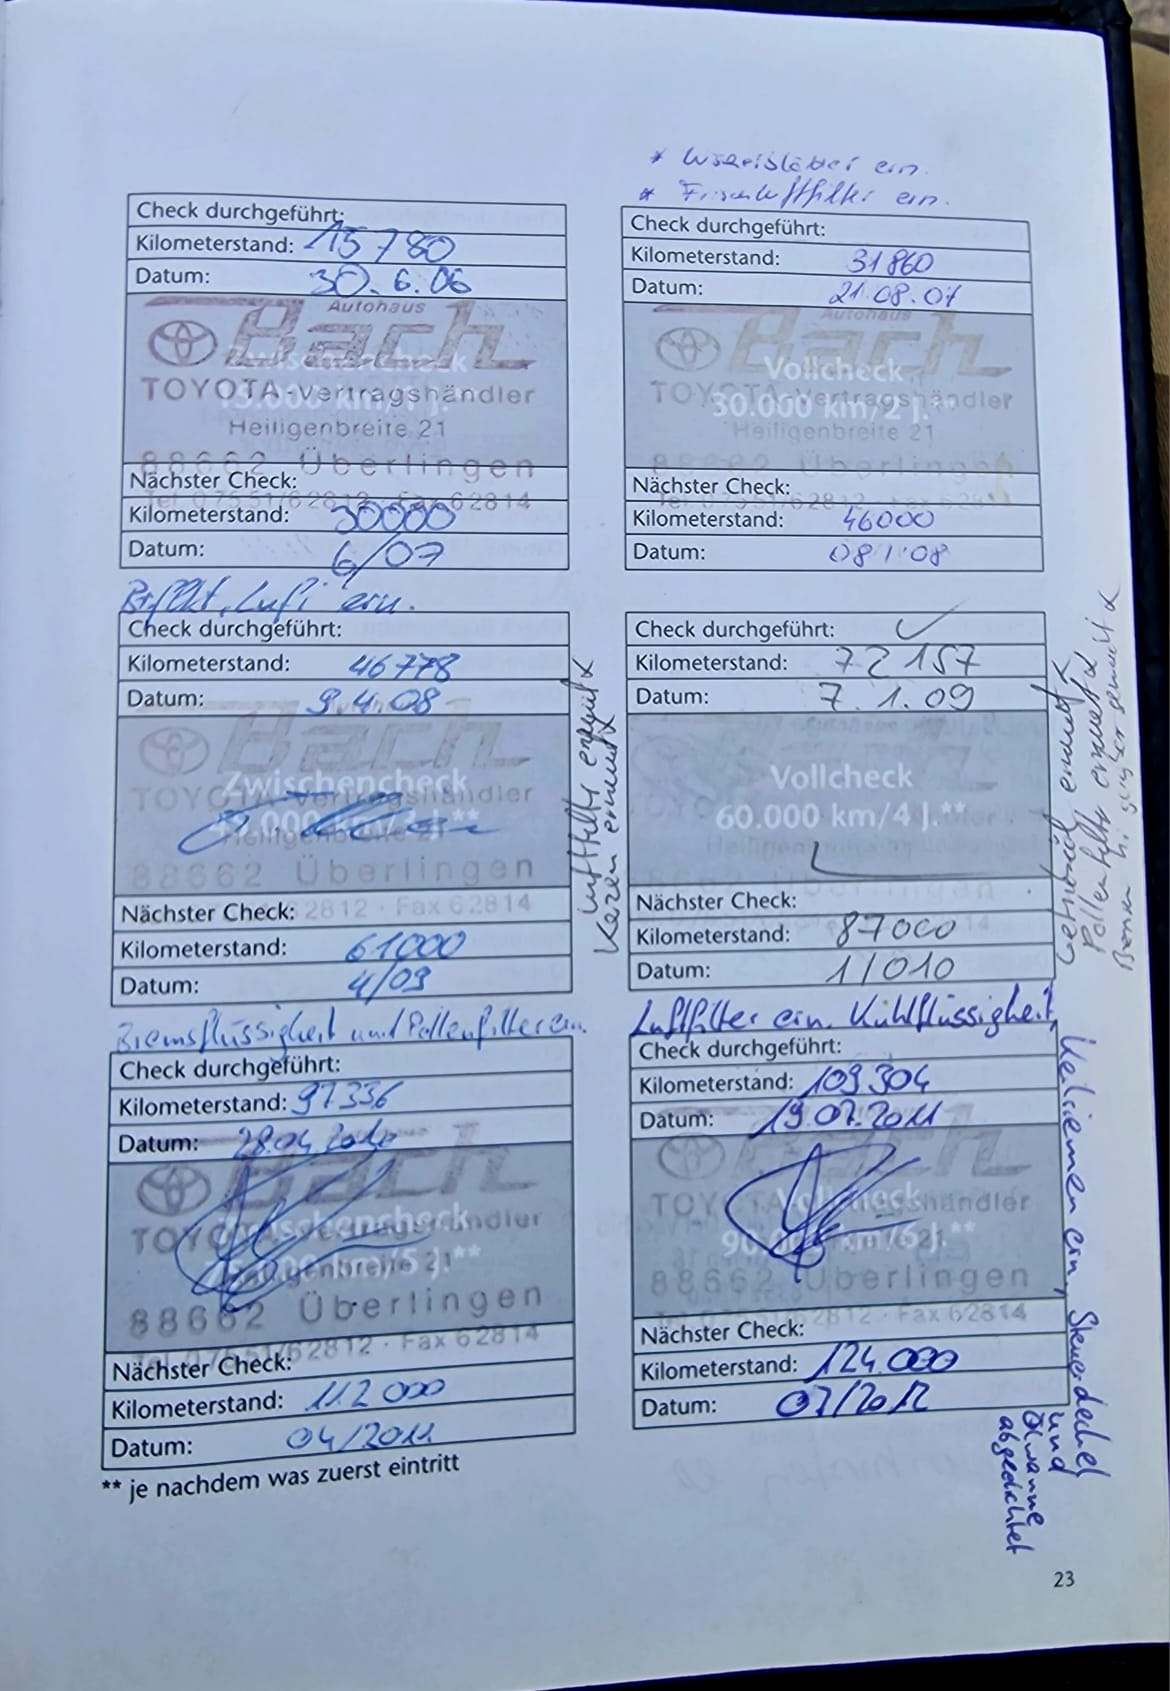 * Wischblätter ern.
* Frischluftfilter ern.
Check durchgeführt:
Kilometerstand: 15780
Datum: 30.6.06
Autohaus
Bach
Zwischencheck
TOYOTA-Vertragshändler
15.000 km/1 J.
Heiligenbreite 21
88662 Überlingen
Nächster Check:
Tel. 07551/62812 · Fax 62814
Kilometerstand: 30000
Datum: 6/07
Check durchgeführt:
Kilometerstand: 31860
Datum: 21.08.07
Autohaus
Bach
Vollcheck
TOYOTA-Vertragshändler
30.000 km/2 J.**
Heiligenbreite 21
88662 Überlingen
Nächster Check:
Kilometerstand: 46000
Datum: 08/08
Lufi ern.
Check durchgeführt:
Kilometerstand: 46778
Datum: 9.4.08
Bach
Zwischencheck
TOYOTA-Vertragshändler
45.000 km/3 J.**
Heiligenbreite 21
88662 Überlingen
Nächster Check:
62812 · Fax 62814
Kilometerstand: 61000
Datum: 4/09
Luftfilter erneuert
Kerzen erneuert
Check durchgeführt: ✓
Kilometerstand: 72157
Datum: 7.1.09
Vollcheck
60.000 km/4 J.**
Nächster Check:
Kilometerstand: 87000
Datum: 1/010
Getriebeöl erneuert
Pollenfilter erneuert
Bremsflüssigkeit und Pollenfilter ern.
Check durchgeführt:
Kilometerstand: 97336
Datum: 28.04.2010
Bach
Zwischencheck
TOYOTA-Vertragshändler
75.000 km/5 J.**
Heiligenbreite 21
88662 Überlingen
Tel. 07551/62812 · Fax 62814
Nächster Check:
Kilometerstand: 112000
Datum: 04/2011
Luftfilter ern. Kühlflüssigkeit,
Check durchgeführt:
Kilometerstand: 109304
Datum: 19.07.2011
Bach
TOYOTA-Vertragshändler
Vollcheck
90.000 km/6 J.**
88662 Überlingen
Tel. 07551/62812 · Fax 62814
Nächster Check:
Kilometerstand: 124.000
Datum: 07/2012
Keilriemen ern, Steuerdeckel
und
Ölwanne
abgedichtet
** je nachdem was zuerst eintritt
23